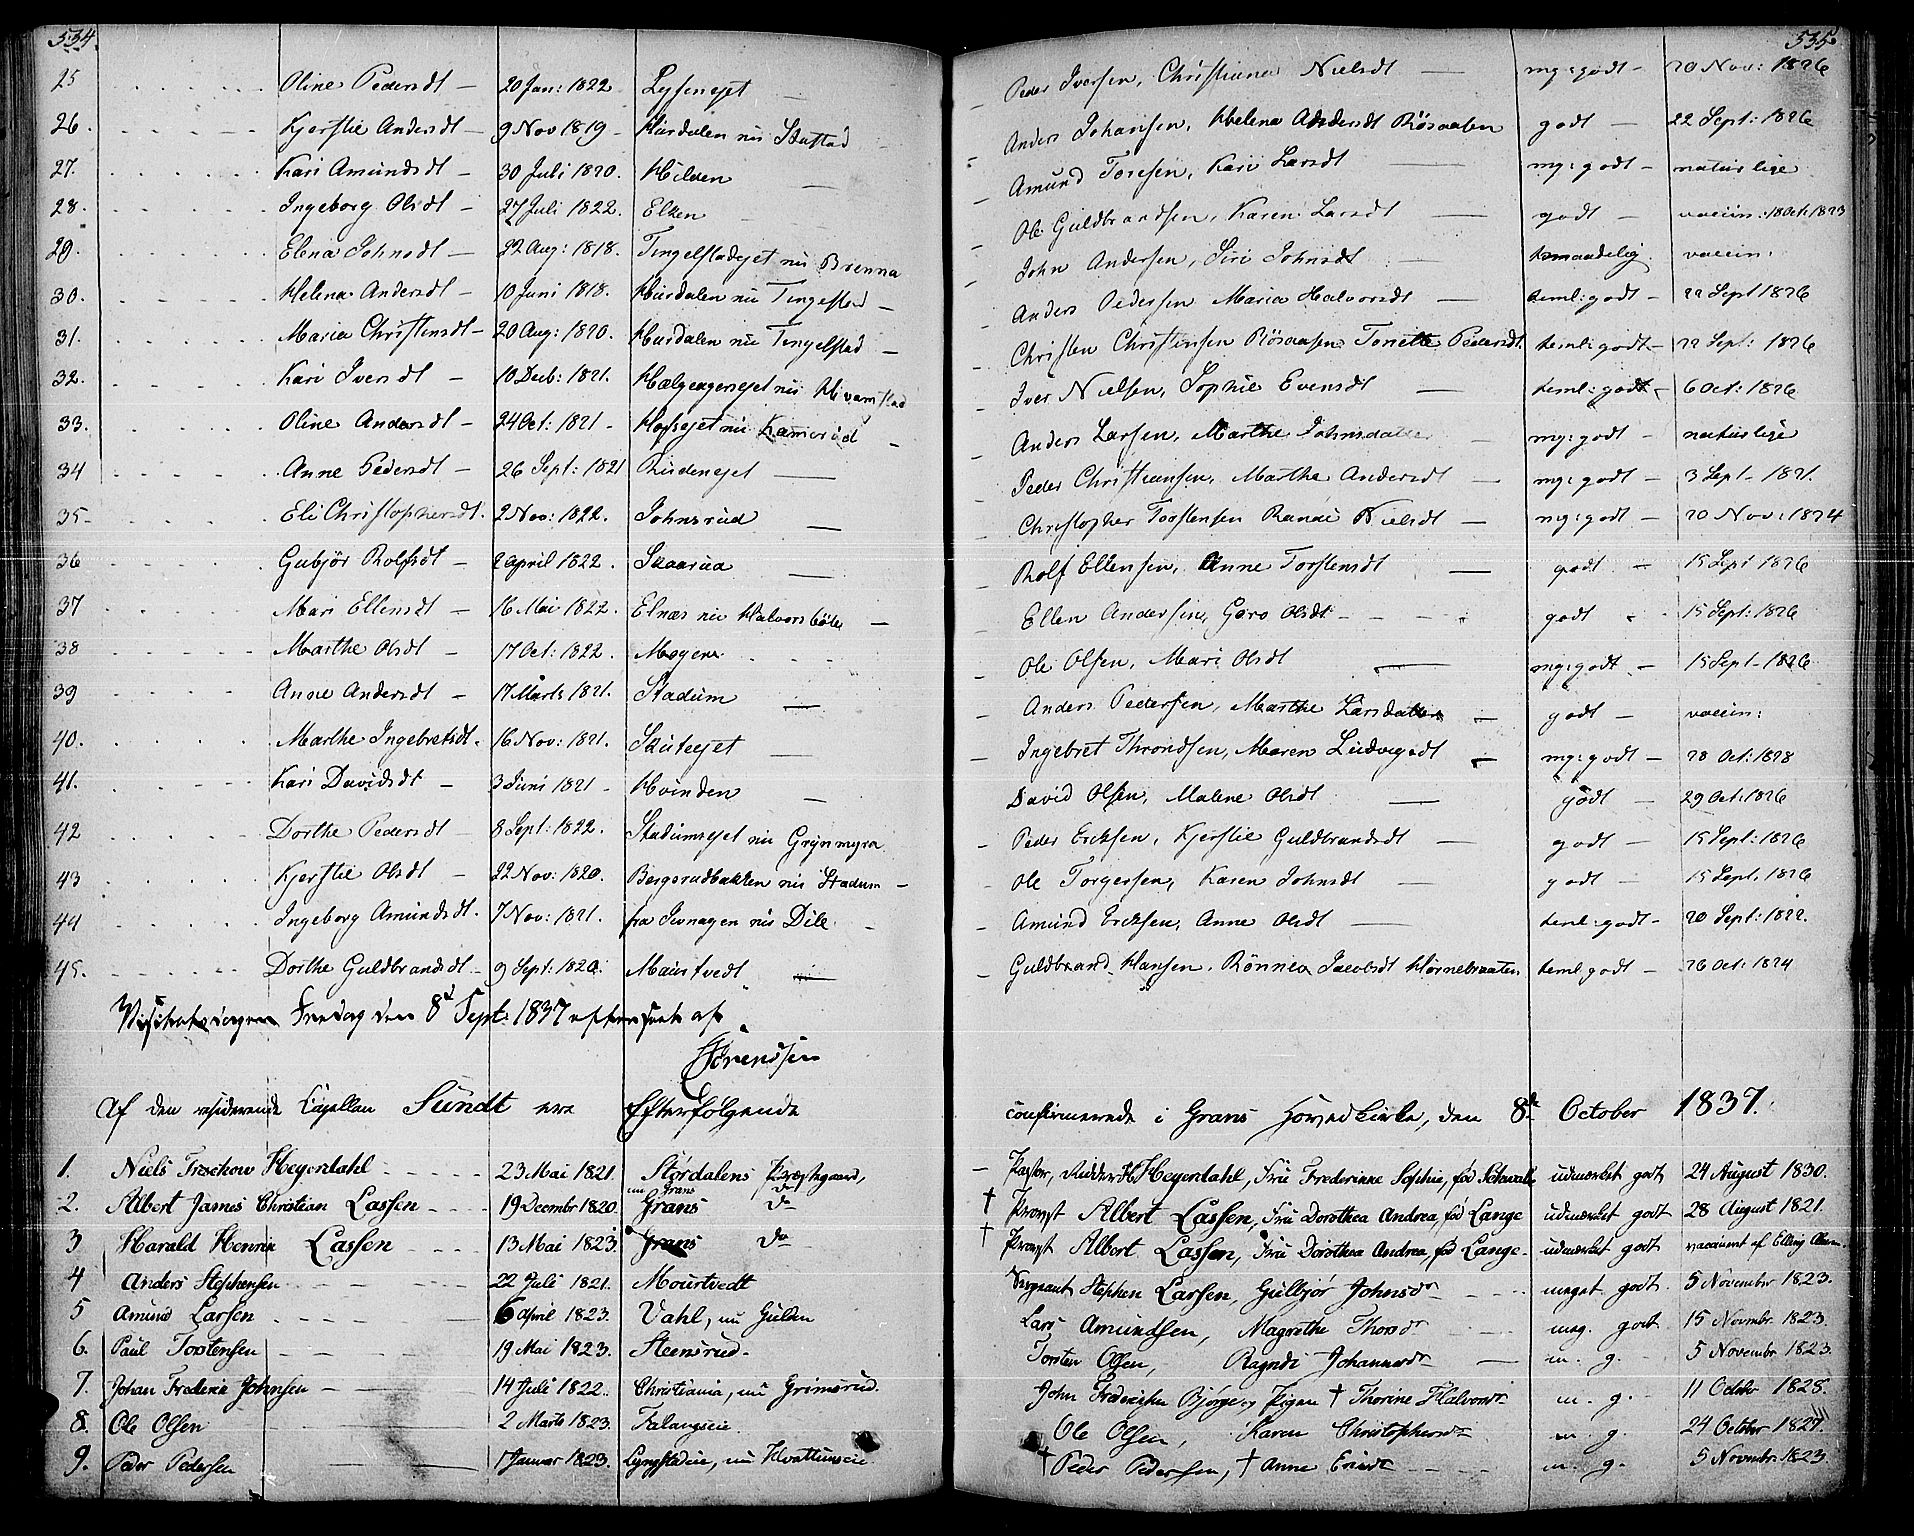 534.
25 Oline Pedersdt — 20 Jan: 1822 Lysenejet —
26. Kjerstie Andersdt — 9 Nov 1819 — Hurdalen nu Skattad
27. Kari Amundsdt — 30 Juli 1820. Hilden —
28. Ingeborg Olsdt — 27 Juli 1822. Elken
29. Elena Johnsdt — 22 Aug: 1818. Tingelstadejet nu Brenna
30. Helena Andersdt — 10 Juni 1818. Hurdalen nu Tingelstad —
31. Maria Christensdt — 20 Aug: 1820. Hurdalen nu Tingelstad —
32. Kari Iversdt — 10 Decb: 1821. nu Hvamstad
33. Oline Andersdt — 24 Oct: 1821 — Hofsejet nu Kamerud —
34 Anne Pedersdt — 26 Sept: 1821 Rudenejet —
35 Eli Christophersdt. 2 Nov: 1822. Johnsrud —
36 Gubjør Rolfsdt — 2 april 1822. Skaarud —
37 Mari Ellensdt — 16 Mai 1822. Elnæs nu Halvorsbøle —
38 Marthe Olsdt — 17 Oct: 1822. Mogen
39 Anne Andersdt — 17 Marts 1821. Stadum —
40. Marthe Ingebretsdt. 16 Nov: 1821. Skuteejet —
41. Kari Davidsdt — 3 Juni 1821 — Hvinden —
42 Dorthe Pedersdt — 8 Sept: 1822. Stadumsejet nu Grynmyra
43 Kjerstie Olsdt — 22 Nov: 1820. Bergsrudbakken nu Stadum —
44 Ingeborg Amundsdt. 7 Nov: 1821. fra Jevnagen nu Dile —
45. Dorthe Guldbrandsdt — 9 Sept: 1820. Maurtvedt —
Fredag den 8d Sept: 1837
Af den residerende Capellan Sundt ere Efterfølgende
1. Niels Treschow Heyerdahl 23 Mai 1821 Størdalens Præstegaard,
nu Grans do
2. Albert James Christian Lassen 19 Decembr 1820. Grans do
3 Harald Henrik Lassen 13 Mai 1823. Grans do
4 Anders Stephensen 22 Juli 1821. Mourtvedt
5 Amund Larsen 6 April 1823. Vahl, nu Gulden
6. Paul Torstensen 19 Mai 1823. Steensrud.
7. Johan Frederik Johnsen 14 Juli 1822. Christiania, nu Grimsrud.
8. Ole Olsen 2 Marts 1823. Falangseie.
9. Peder Pedersen 1 Januar 1823. Lyngstadeie, nu Hvattumseie
535.
Peder Iversen, Christiane Nielsdt — mg: godt — 20 Nov: 1826
Anders Johansen, Helena Andersdt Røsaaen godt — 22 Sept: 1826
Amund Toresen, Kari Larsdt — mg: godt — naturlige
Ole Guldbrandsen, Karen Larsdt — godt — vaccin: 18 Oct: 1823
John Andersen, Siri Johnsdt — temaadelig vaccin:
Anders Pedersen Maria Halvorsdt — teml: godt — 22 Sept 1826
Christen Christensen Røsaasen Tonette Pedersdt. teml: godt — 22 Sept: 1826
Iver Nielsen, Sophie Evensdt — teml: godt — 6 Oct: 1826
Anders Larsen, Marthe Johnsdatter mg: godt — naturlige
Peder Christiansen, Marthe Andersdt — mg: godt — 3 Sept — 1821.
Christopher Torstensen Randi Nielsdt — mg: godt — 20 Nov: 1824
Rolf Ellensen, Anne Torstensdt — godt — 15 Sept 1826
Ellen Andersen, Gøro Olsdt godt 15 Sept: 1826
Ole Olsen, Mari Olsdt — mg: godt — 15 Sept — 1826
Anders Pedersen, Marthe Larsdatter — godt — vaccin:
Ingebret Throndsen, Maren Ludvigsdt — mg: godt — 28 Oct: 1828
David Olsen, Malene Olsdt — godt — 29 Oct: 1826
Peder Ericksen, Kjerstie Guldbrandsdt — godt — 15 Sept: 1826
Ole Torgersen, Karen Johnsdt — godt — 15 Sept. 1826
Amund Ericksen, Anne Olsdt — teml: godt — 20 Sept: 1822.
Guldbrand Hansen, Rønnea Jacobsdt Hornebraaten teml: godt — 26 Oct: 1824
confirmerede i Grans Hovedkirke, den 8de October 1837.
Pastor, Ridder H Heyerdahl, Frue Frederikke Sophie, fød udmærket godt 24 August 1830.
† Provst Albert Lassen, Frue Dorothea Andrea, fød Lange udmærket godt 28 August 1821.
† Provst Albert Lassen, Frue Dorothea Andrea, fød Lange. udmærket godt vaccineret af Elling
Sergeant Stephen Larsen, Gulbjør Johnsdr meget godt. 5 November 1823.
Lars Amundsen, Magrethe Thorsdr meg. godt 15 Novembr 1823.
Torsten Olsen, Ragndi Johannesdr — m. g. 5 Novembr 1823.
John Frederiksen Bjørge, Pigen † Thorine Halvorsdr m. g. 11 October 1825.
Ole Olsen, Karen Christophersdr m. g. 24 October 1827.
† Peder Pedersen, † Anne Eriksdr m. g. 5 Novembr 1823.